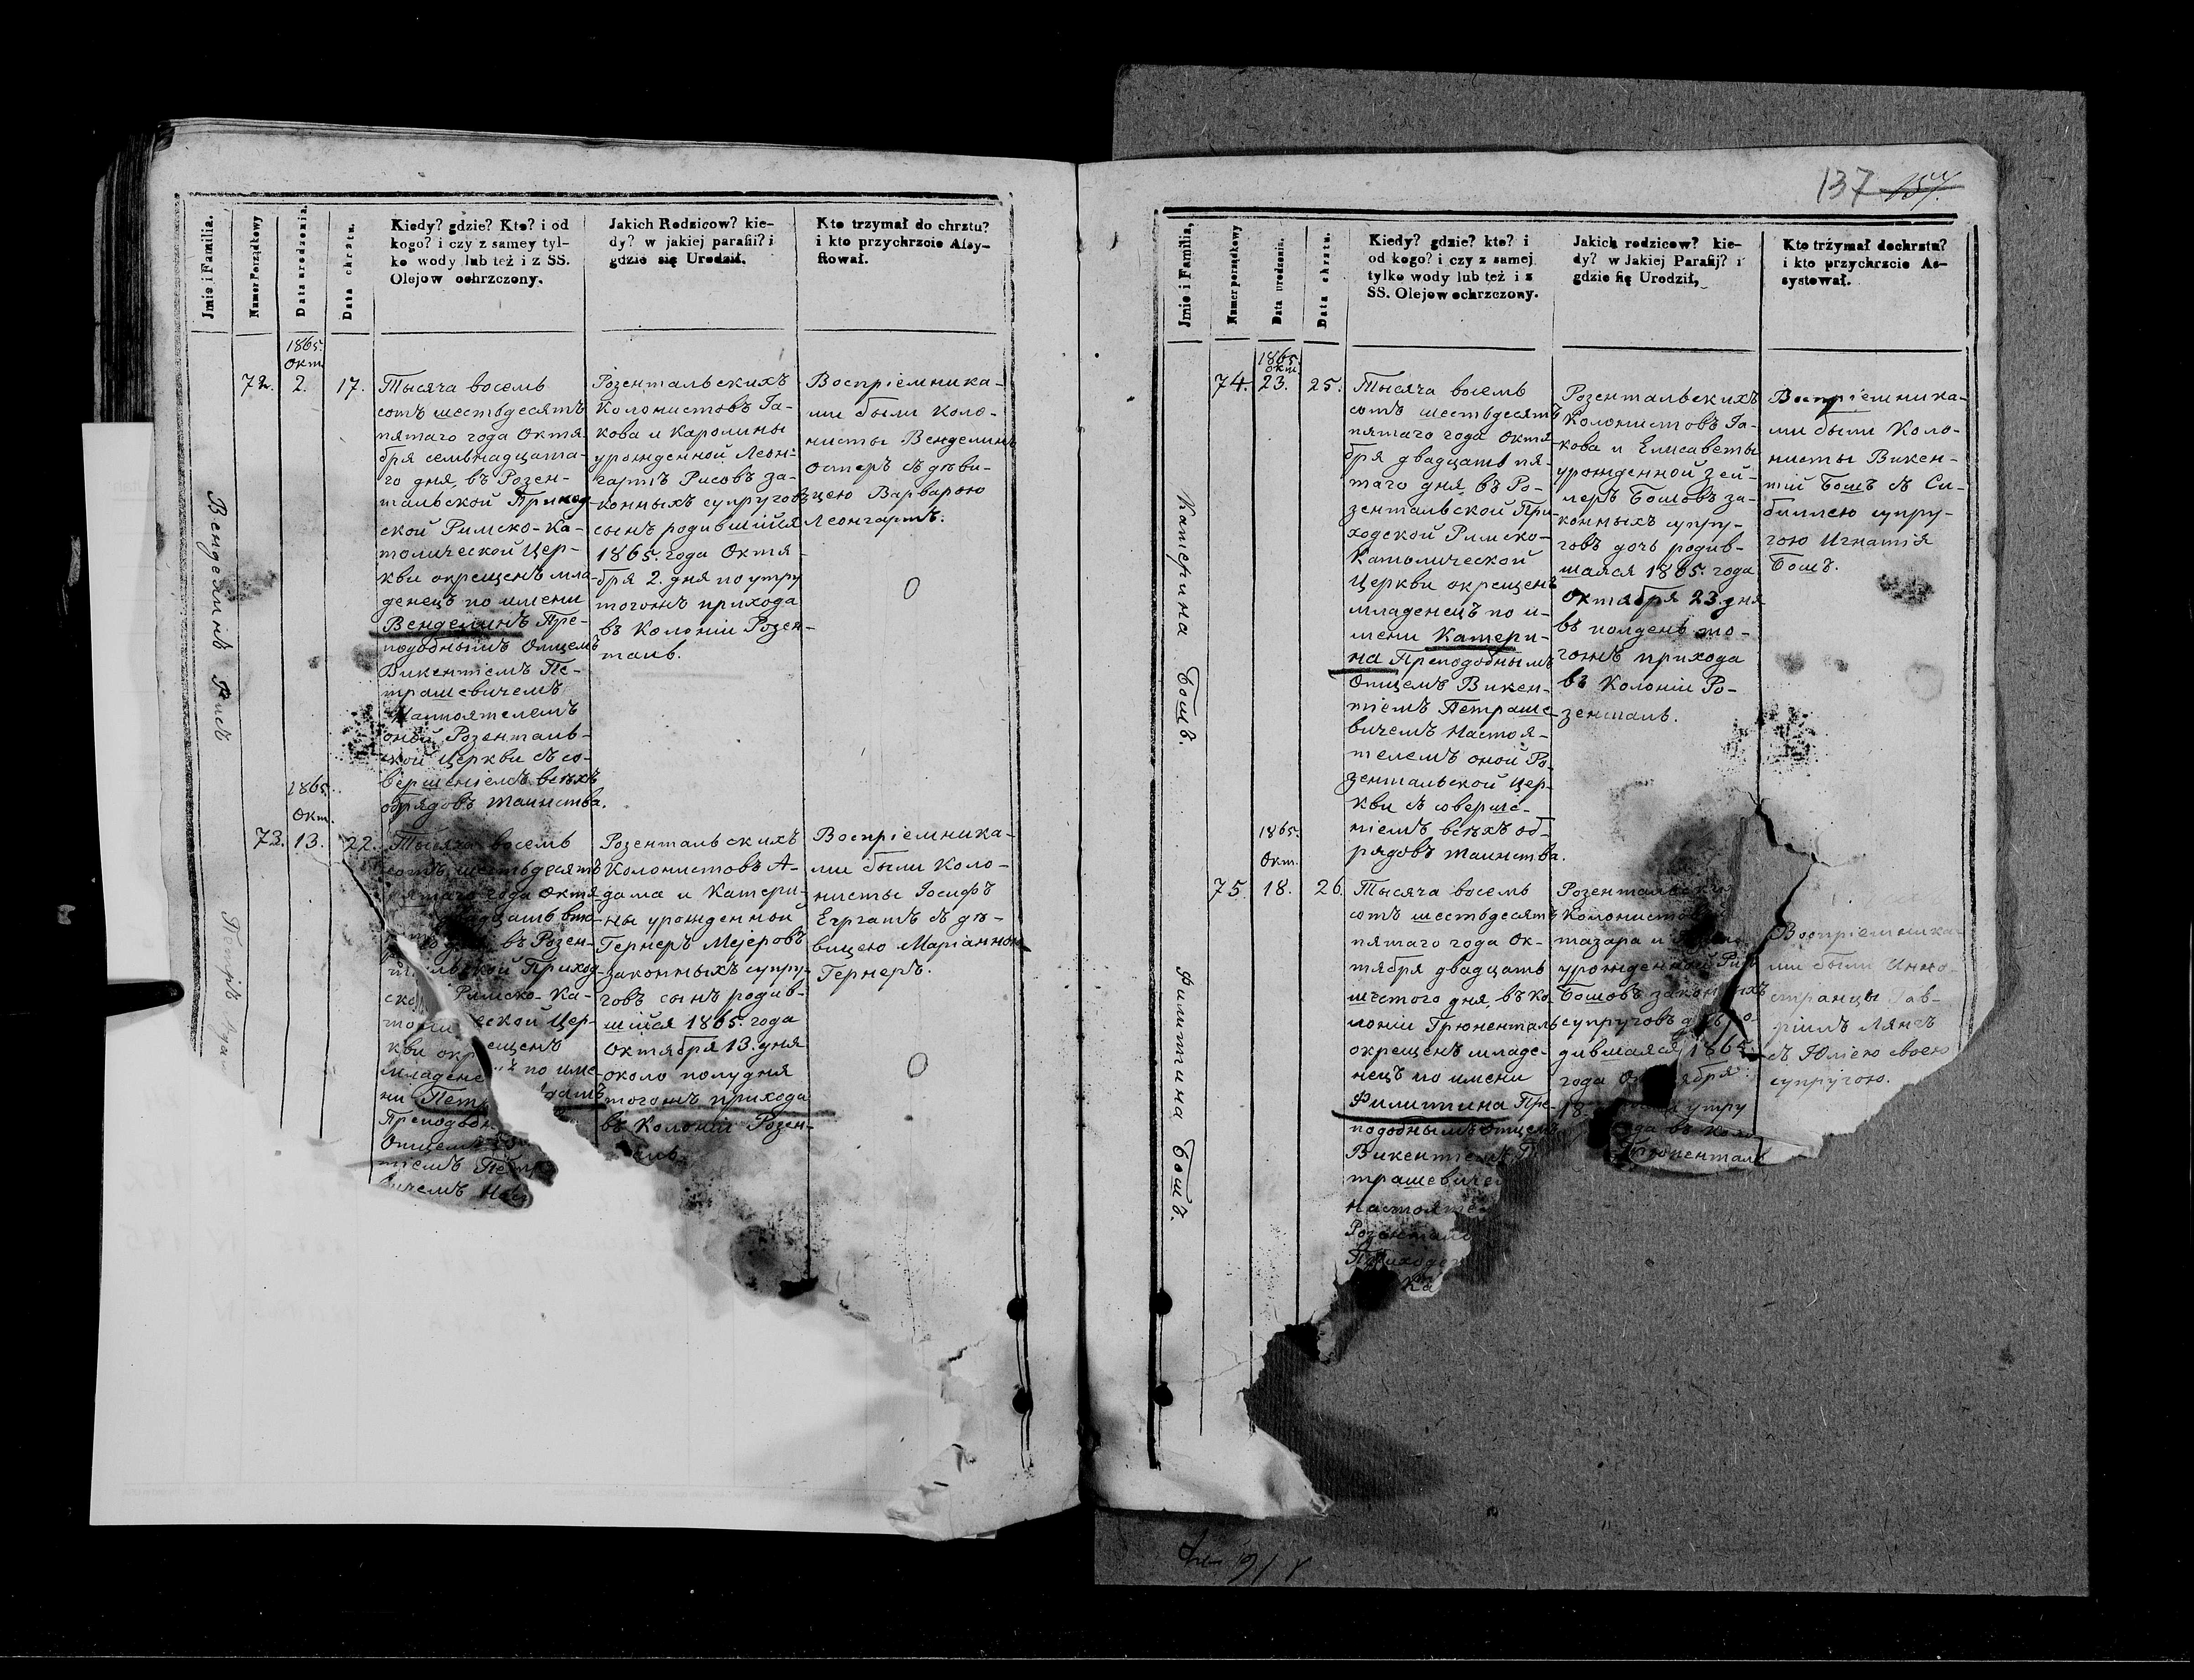 Jmie i Familia.
Numer Porządkowy
Data urodzenia.
Data chrztu.
Kiedy? gdzie? Kto? i od
kogo? i czy z samey tyl-
ko wody lub też i z SS.
Olejow ochrzczony.
Jakich Rodzicow? kie-
dy? w jakiej parafii? i
gdzie się Urodził.
Kto trzymał do chrztu?
i kto przychrzcie Assy-
stował.
Венделинъ Рисъ
1865.
Окт.
72. 2. 17.
Тысяча восемь
сотъ шестьдесятъ
пятаго года Октя-
бря семьнадцата-
го дня, въ Розен-
тальской Приход-
ской Римско-Ка-
толической Цер-
кви окрещенъ мла-
денецъ по имени
Венделинъ Пре-
подобнымъ Отцемъ
Викентіемъ Пе-
трашевичемъ
Настоятелемъ
оной Розенталь-
ской Церкви съ со-
вершеніемъ всѣхъ
обрядовъ таинства.
Розентальскихъ
Колонистовъ Іа-
кова и Каролины
урожденной Леон-
гартъ Рисовъ за-
конныхъ супруговъ
сынъ родившійся
1865. года Октя-
бря 2. дня по утру
тогожъ прихода
въ Колоніи Розен-
таль.
Воспріемника-
ми были Коло-
нисты Венделинъ
Остеръ съ дѣви-
цею Варварою
Леонгартъ.
Петръ Адам
1865.
Окт.
73. 13. 22.
Тысяча восемь
сотъ шестьдесятъ
пятаго года Октя-
двадцать вто-
дня, въ Розен-
тальской Приход-
ской Римско-Ка-
толической Цер-
кви окрещенъ
младенецъ по име-
ни Петръ Адамъ
Преподобн
Отцемъ
тіемъ Петр
вичемъ Нас
Розентальскихъ
Колонистовъ А-
дама и Катери-
ны урожденной
Гернеръ Мејеровъ
законныхъ супру-
говъ сынъ родив-
шійся 1865. года
Октября 13. дня
около полудня
тогожъ прихода
въ Колоніи Розен-
таль.
Воспріемника-
ми были Коло-
нисты Іосифъ
Ергатъ съ дѣ-
вицею Маріанною
Гернеръ.
137 157.
Jmie i Familia,
Numer porządkowy
Data urodzenia.
Data chrztu.
Kiedy? gdzie? kto? i
od kogo? i czy z samej
tylko wody lub też i z
SS. Olejow ochrzczony.
Jakich rodzicow? kie-
dy? w Jakiej Parafij? i
gdzie się Urodził,
Kto trźymał dochrztu?
i kto przychrzcie As-
systował.
Катерина Бошъ.
1865.
Окт.
74. 23. 25.
Тысяча восемь
сотъ шестьдесятъ
пятаго года Октя-
бря двадцать пя-
таго дня, въ Ро-
зентальской При-
ходской Римско-
Католической
Церкви окрещенъ
младенецъ по и-
мени Катери-
на Преподобнымъ
Отцемъ Викен-
тіемъ Петраше-
вичемъ Настоя-
телемъ оной Ро-
зентальской Цер-
кви съ соверше-
ніемъ всѣхъ об-
рядовъ таинства.
Розентальскихъ
Колонистовъ Іа-
кова и Елисаветы
урожденной Зей-
леръ Бошовъ за-
конныхъ супру-
говъ дочь родив-
шаяся 1865. года
Октября 23. дня
въ полдень то-
гожъ прихода
въ Колоніи Ро-
зенталь.
Воспріемника-
ми были Коло-
нисты Викен-
тій Бошъ съ Си-
биллею супру-
гою Игнатія
Бошъ.
Филипина Бошъ.
1865.
Окт.
75. 18. 26.
Тысяча восемь
сотъ шестьдесятъ
пятаго года Ок-
тября двадцать
шестого дня, въ Ко-
лоніи Грюненталь
окрещенъ младе-
нецъ по имени
Филипина Пре-
подобнымъ Отцемъ
Викентіемъ П
трашевиче
Настояте
Розенталь
Приходск
Ка
Розентальских
Колонисто
тазара и
урожденной
Бошовъ законныхъ
супруговъ дочь ро-
дившаяся 1865.
года Октября
18. утру
въ Коло
Грюненталь
Воспріемника-
ми были Инно-
странцы Гав-
ріилъ Лянгъ
съ Юліею своею
супругою.